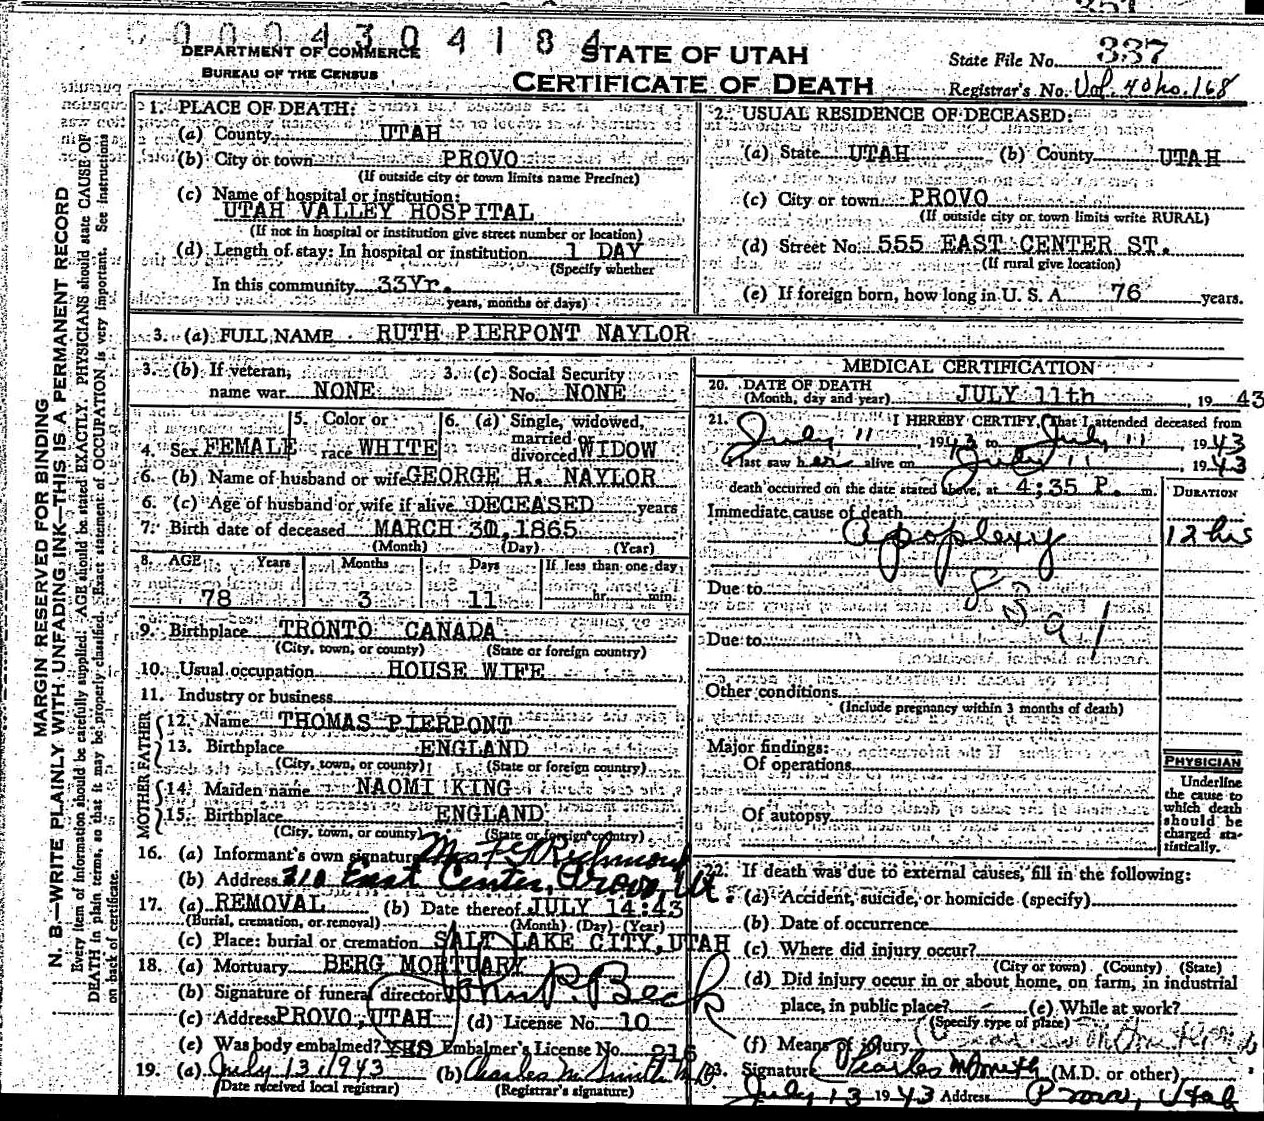 351
0000430 4184
DEPARTMENT OF COMMERCE
BUREAU OF THE CENSUS
STATE OF UTAH
CERTIFICATE OF DEATH
State File No. 337
Registrar's No. Vol. 40 no. 168
MARGIN RESERVED FOR BINDING
N. B.—WRITE PLAINLY WITH UNFADING INK—THIS IS A PERMANENT RECORD
Every item of information should be carefully supplied. AGE should be stated EXACTLY. PHYSICIANS should state CAUSE OF
DEATH in plain terms, so that it may be properly classified. Exact statement of OCCUPATION is very important. See instructions
on back of certificate.
1. PLACE OF DEATH:
(a) County UTAH
(b) City or town PROVO
(If outside city or town limits name Precinct)
(c) Name of hospital or institution:
UTAH VALLEY HOSPITAL
(If not in hospital or institution give street number or location)
(d) Length of stay: In hospital or institution 1 DAY
(Specify whether
In this community 33Yr.
years, months or days)
2. USUAL RESIDENCE OF DECEASED:
(a) State UTAH (b) County UTAH
(c) City or town PROVO
(If outside city or town limits write RURAL)
(d) Street No. 555 EAST CENTER ST.
(If rural give location)
(e) If foreign born, how long in U. S. A. 76 years.
3. (a) FULL NAME RUTH PIERPONT NAYLOR
3. (b) If veteran, name war NONE
3. (c) Social Security No. NONE
4. Sex FEMALE
5. Color or race WHITE
6. (a) Single, widowed, married or divorced WIDOW
6. (b) Name of husband or wife GEORGE H. NAYLOR
6. (c) Age of husband or wife if alive DECEASED years
7. Birth date of deceased MARCH 30, 1865
(Month) (Day) (Year)
8. AGE Years Months Days If less than one day
78 3 11 hr. min.
9. Birthplace TRONTO CANADA
(City, town, or county) (State or foreign country)
10. Usual occupation HOUSE WIFE
11. Industry or business
FATHER
12. Name THOMAS PIERPONT
13. Birthplace ENGLAND
(City, town, or county) (State or foreign country)
MOTHER
14. Maiden name NAOMI KING
15. Birthplace ENGLAND
(City, town, or county) (State or foreign country)
16. (a) Informant's own signature Mrs Richmond
(b) Address 310 East Center, Provo, Ut.
17. (a) REMOVAL (b) Date thereof JULY 14:43
(Burial, cremation, or removal) (Month) (Day) (Year)
(c) Place: burial or cremation SALT LAKE CITY, UTAH
18. (a) Mortuary BERG MORTUARY
(b) Signature of funeral director John P. Beck
(c) Address PROVO, UTAH (d) License No. 10
(e) Was body embalmed? YES Embalmer's License No. 216
19. (a) July 13, 1943 (b) Charles M Smith MD
(Date received local registrar) (Registrar's signature)
MEDICAL CERTIFICATION
20. DATE OF DEATH
(Month, day and year) JULY 11th, 1943
21. I HEREBY CERTIFY, That I attended deceased from
July 11 1943 to July 11 1943
I last saw her alive on July 11 1943
death occurred on the date stated above, at 4:35 P. m.
DURATION
Immediate cause of death
Apoplexy 12 hrs
Due to
83a1
Due to
Other conditions
(Include pregnancy within 3 months of death)
Major findings:
Of operations
Of autopsy
PHYSICIAN
Underline
the cause to
which death
should be
charged sta-
tistically.
22. If death was due to external causes, fill in the following:
(a) Accident, suicide, or homicide (specify)
(b) Date of occurrence
(c) Where did injury occur?
(City or town) (County) (State)
(d) Did injury occur in or about home, on farm, in industrial
place, in public place? (e) While at work?
(Specify type of place)
(f) Means of injury
23. Signature Charles M Smith (M.D. or other)
July 13 1943 Address Provo, Utah